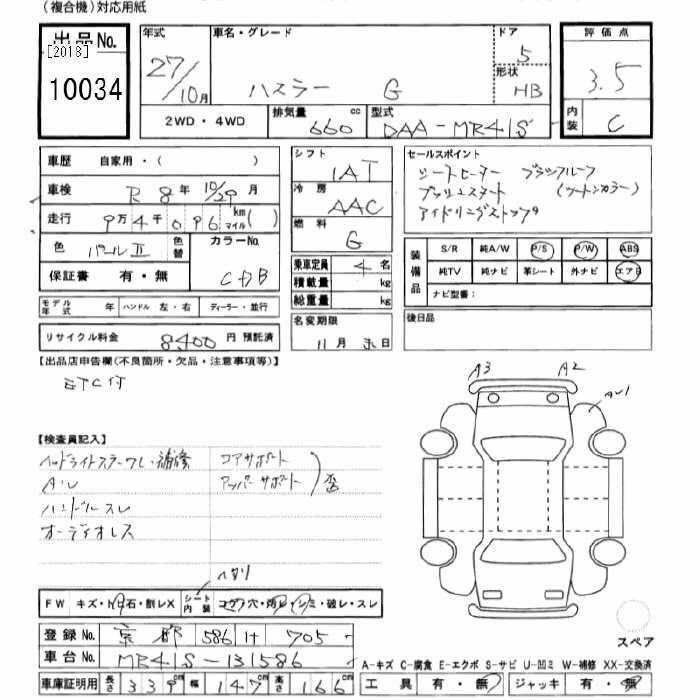 (複合機)対応用紙
出品No. [2018] 10034
年式 27/10月
車名・グレード ハスラー G
ドア 5
形状 HB
評価点 3.5
内装 C
2WD・4WD
排気量 660 cc
型式 DAA-MR41S
車歴 自家用・( )
車検 R8年 10/29月
走行 9万4千096 km マイル( )
色 パールII 色替
カラーNo.
保証書 有・無
モデル年式 年 ハンドル 左・右 ディーラー・並行
リサイクル料金 8400円 預託済
シフト IAT
冷房 AAC
燃料 G
乗車定員 4名
積載量 kg
総重量 kg
名変期限 11月末日
セールスポイント
シートヒーター ブラックルーフ
プッシュスタート (ツートンカラー)
アイドリングストップ
装備品 S/R 純A/W P/S P/W ABS
純TV 純ナビ 革シート 外ナビ エアB
ナビ型番:
後日品
【出品店申告欄(不良箇所・欠品・注意事項等)】
ETC付
【検査員記入】
ヘッドライトスラーワレ・補修 コアサポート
A・レ アッパーサポート 歪
ハンドルスレ
オーディオレス
A3 A2
ヘタリ
FW キズ・トビ石・割レX シート内装 コゲ穴・汚レ・シミ・破レ・スレ
登録No. 京都 586 705
車台No. MR41S-131586
車庫証明用 長さ 339cm 幅 147cm 高さ 166cm
スペア
A-キズ C-腐食 E-エクボ S-サビ U-凹ミ W-補修 XX-交換済
工具 有・無 ジャッキ 有・無